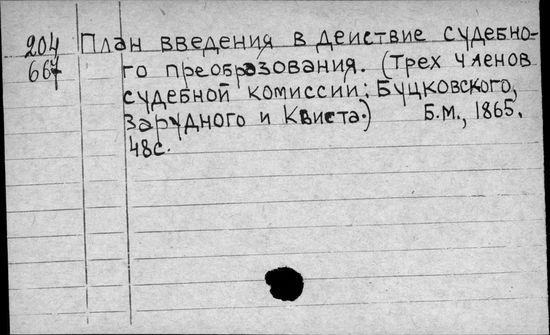 204 План введения в действие судебно-
667 го преобразования. (Трех членов
судебной комиссии: Буцковского,
Зарудного и Квиста.) Б.М., 1865.
48с.